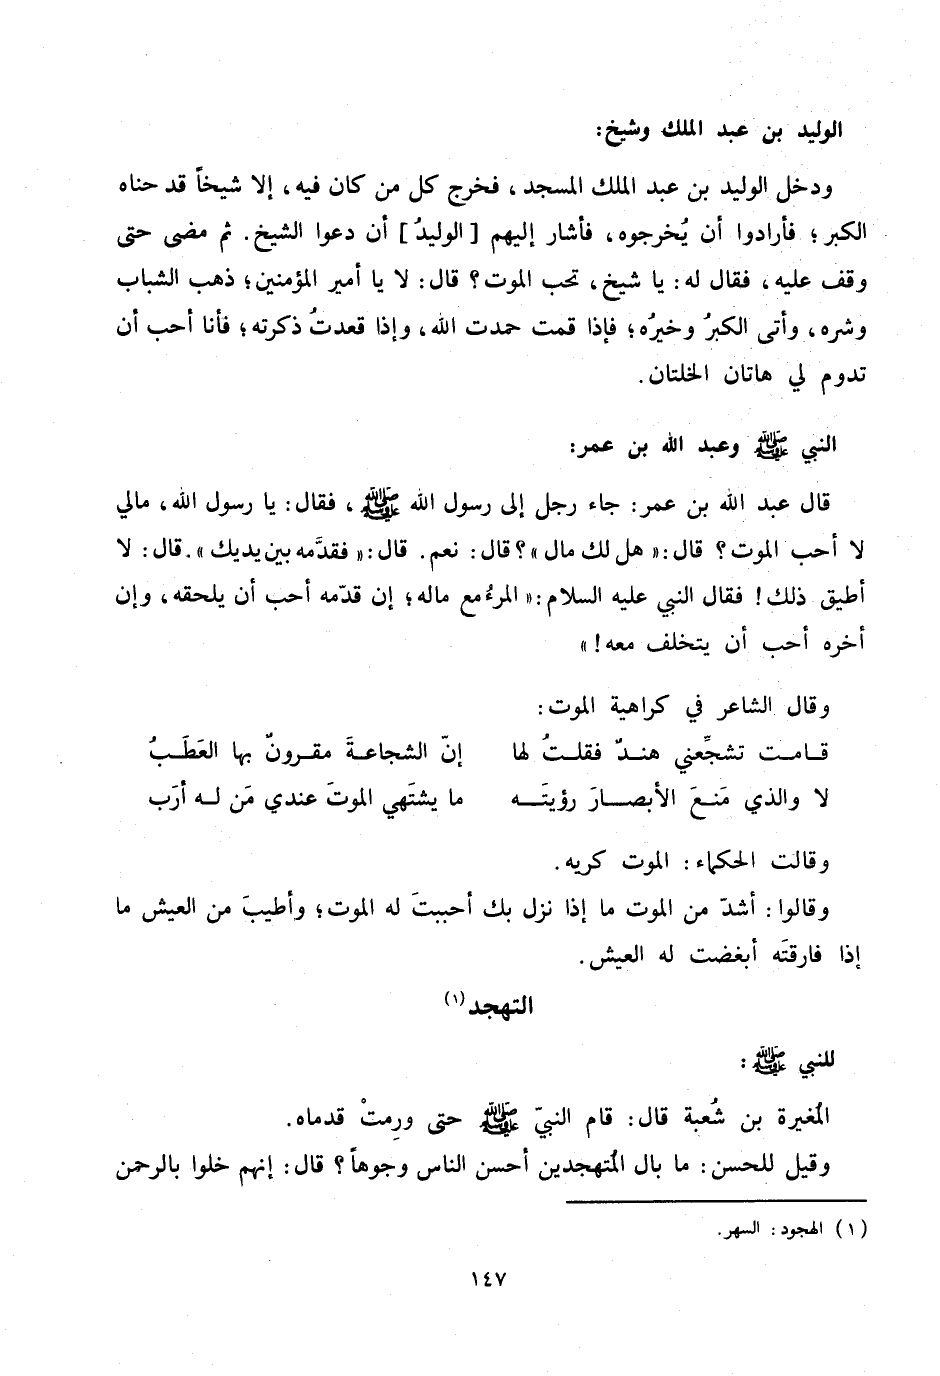 الوليد بن عبد الملك وشيخ:
ودخل الوليد بن عبد الملك المسجد، فخرج كل من كان فيه، إلا شيخاً قد حناه
الكبر؛ فأرادوا أن يُخرجوه، فأشار إليهم [الوليدُ] أن دعوا الشيخ. ثم مضى حتى
وقف عليه، فقال له: يا شيخ، تحب الموت؟ قال: لا يا أمير المؤمنين؛ ذهب الشباب
وشره، وأتى الكبرُ وخيرُه؛ فإذا قمت حمدت الله، وإذا قعدتُ ذكرته؛ فأنا أحب أن
تدوم لي هاتان الخلتان.
النبي ﷺ وعبد الله بن عمر:
قال عبد الله بن عمر: جاء رجل إلى رسول الله ﷺ، فقال: يا رسول الله، مالي
لا أحب الموت؟ قال: «هل لك مال»؟ قال: نعم. قال: «فقدَّمه بين يديك». قال: لا
أطيق ذلك! فقال النبي عليه السلام: «المرءُ مع ماله؛ إن قدّمه أحب أن يلحقه، وإن
أخره أحب أن يتخلف معه!»
وقال الشاعر في كراهية الموت:
قامت تشجِّعني هندٌ فقلتُ لها إنّ الشجاعةَ مقرونٌ بها العَطَبُ
لا والذي مَنعَ الأبصارَ رؤيتَه ما يشتَهي الموتَ عندي مَن له أرَب
وقالت الحكماء: الموت كريه.
وقالوا: أشدّ من الموت ما إذا نزل بك أحببتَ له الموت؛ وأطيبَ من العيش ما
إذا فارقتَه أبغضت له العيش.
التهجد (١)
للنبي ﷺ:
المُغيرة بن شُعبة قال: قام النبيّ ﷺ حتى ورِمتْ قدماه.
وقيل للحسن: ما بال المُتهجدين أحسن الناس وجوهاً؟ قال: إنهم خلوا بالرحمن
(١) الهجود: السهر.
١٤٧